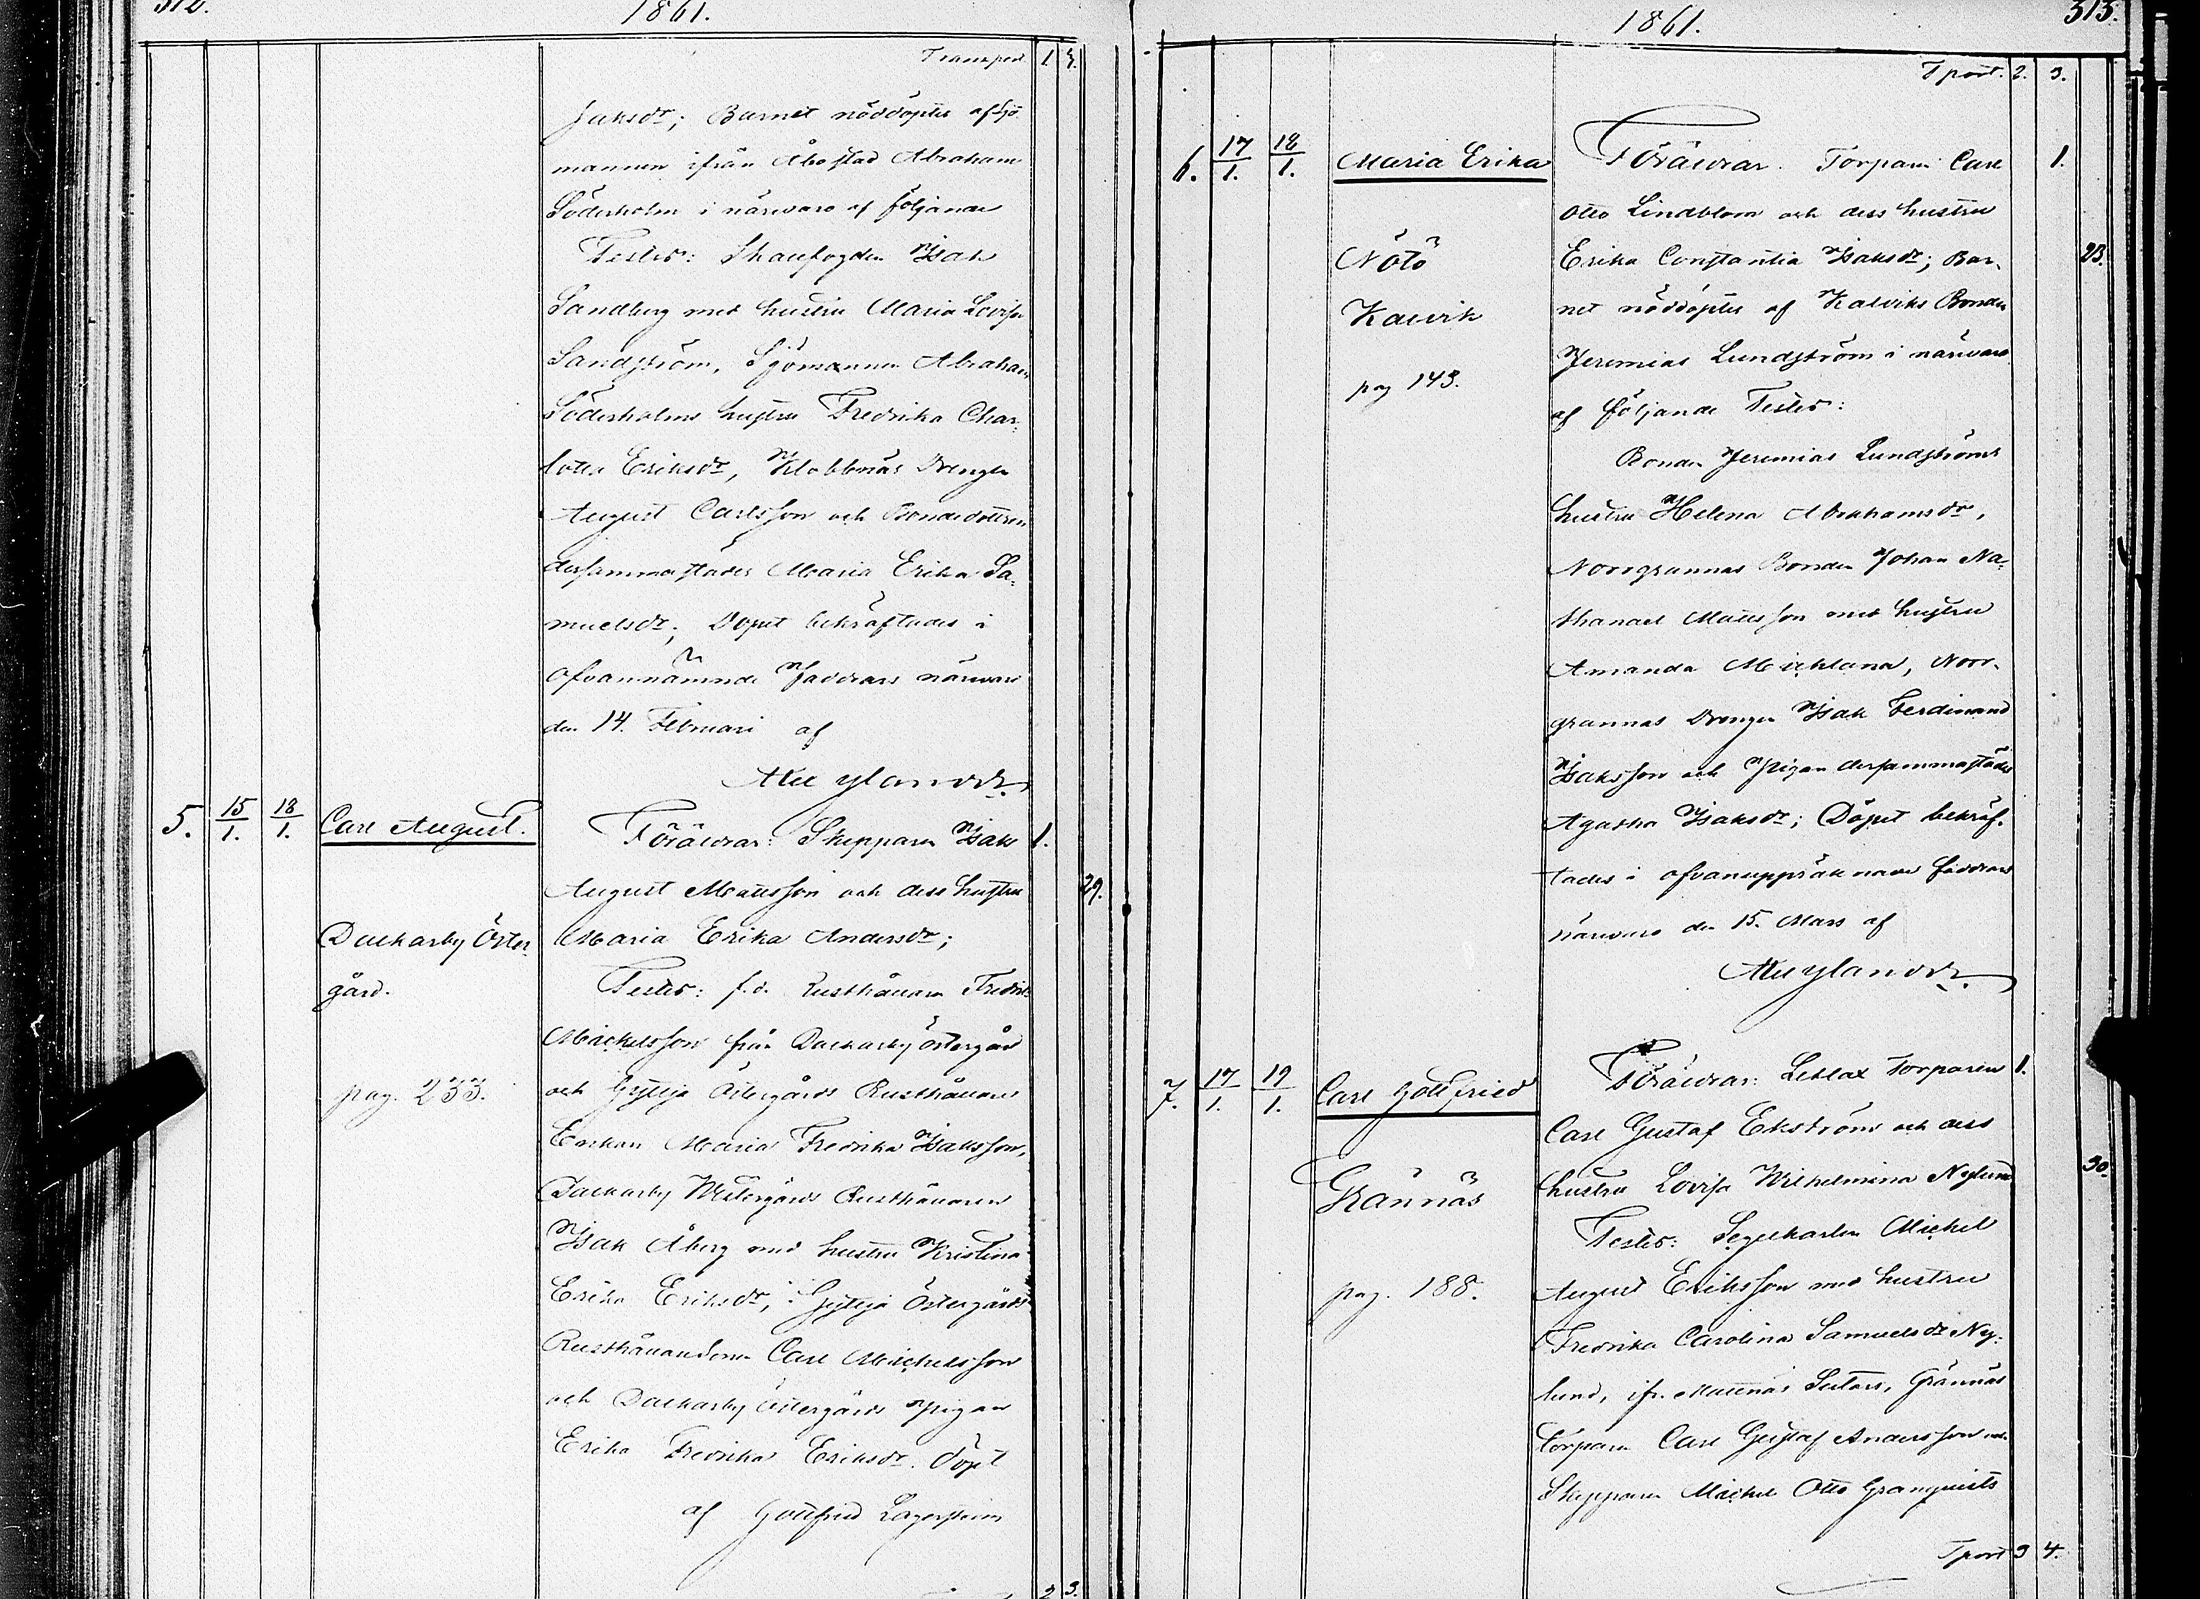 312.
1861.
Transport 1. 3.
Jaksdr; Barnet nöddöptes af Sjö
mannen ifrån Åbo stad Abraham
Söderholm i närvaro af följande
Testes: Skaufogden Isak
Sandberg med hustru Maria Lovisa
Sandström, Sjömannen Abraham
Söderholms hustru Fredrika Char-
lotta Eriksdr, Klobbnäs Drengen
August Carlsson och Bondedottren
dersammastädes Maria Erika Sa-
muelsdr; Dopet bekräftades i
ofvannämnde Faddrars närvaro
den 14. Februari af
5. 15/1. 18/1. Carl August. Föräldrar: Skepparen Isak 1.
August Mattsson och dess hustru 29.
Dalkarby Öster- Maria Erika Andersdr;
gård. Testes: f.d. Rusthållaren Fredrik
Michelsson från Dalkarby Östergård
pag. 233. och Gyttja Östergårds Rusthållares
Enkan Maria Fredrika Isaksson,
Dalkarby Westergårds Rusthållaren
Isak Åberg med hustru Kristina
Erika Eriksdr, Gyttja Östergårds
Rusthållaresonen Carl Michelsson
och Dalkarby Östergårds Pigan
Erika Fredrika Eriksdr. Döpt
af Gottfried Lagerström
2 3.
1861.
313.
Tport. 2. 3.
6. 17/1. 18/1. Maria Erika Föräldrar. Torparen Carl 1.
Otto Lindblom och dess hustru
Nötö Erika Constantia Isaksdr; Bar- 23.
Kalvik net nöddöptes af Kalviks Bonden
Jeremias Lundström i närvaro
pag 143. af följande Testes:
Bonden Jeremias Lundströms
hustru Helena Abrahamsdr,
Norrgrannas Bonden Johan Na-
thanael Mattsson med hustru
Amanda Michelina, Norr-
grannas Drengen Isak Ferdinand
Isaksson och Pigan dersammastädes
Agatha Isaksdr; Döpet bekräf-
tades i ofvanuppräknade faddrars
närvaro den 15. Mars af
7. 17/1. 19/1. Carl Gottfried Föräldrar: Lletlax Torparen 1.
Carl Gustaf Ekström och dess
Grännäs hustru Lovisa Wilhelmina Nylund 30.
Testes: Segelkarlen Michel
pag. 188. August Eriksson med hustru
Fredrika Carolina Samuelsdr Ny-
lund, ifr. Mattnäs Sutars, Grännäs
Torparen Carl Gustaf Andersson och
Skepparen Michel Otto Granqvists
Tport 3 4.